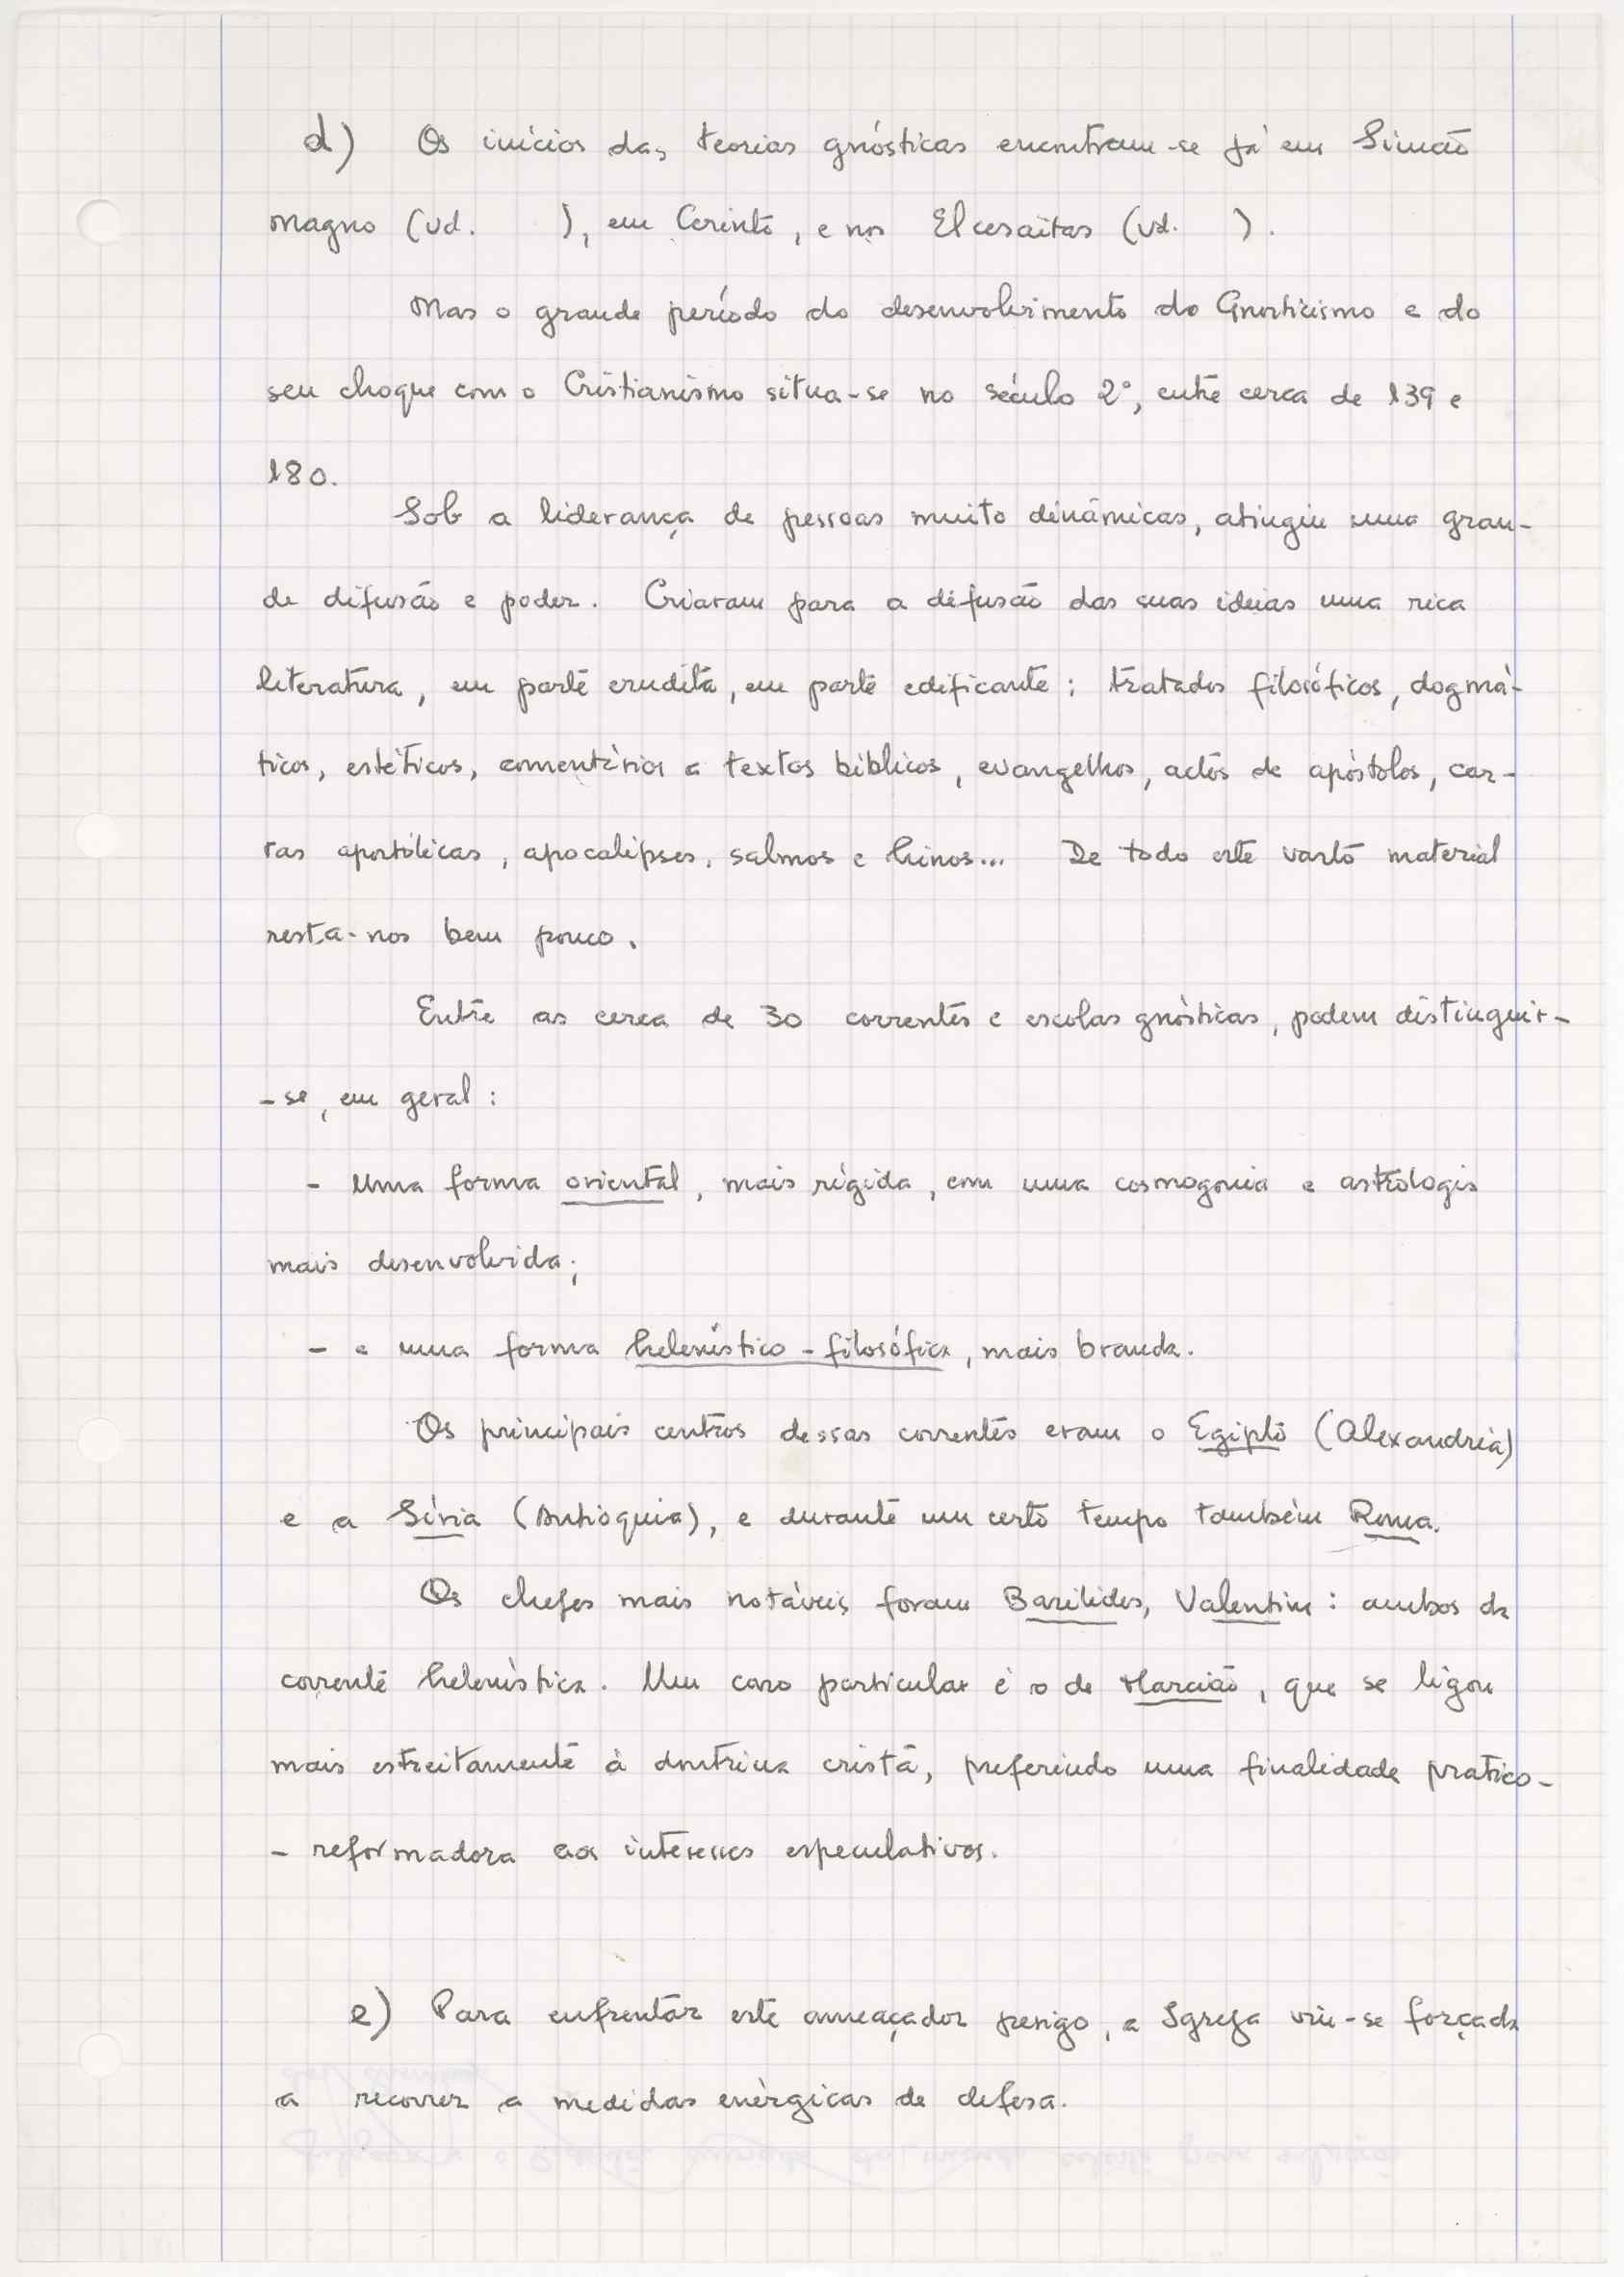 d) Os inícios das teorias gnósticas encontram-se já em Simão
Magno (vd. ), em Cerinto, e nos Elcesaitas (vd. ).
Mas o grande período do desenvolvimento do Gnosticismo e do
seu choque com o Cristianismo situa-se no século 2º, entre cerca de 139 e
180.
Sob a liderança de pessoas muito dinâmicas, atingiu uma gran-
de difusão e poder. Criaram para a difusão das suas ideias uma rica
literatura, em parte erudita, em parte edificante: tratados filosóficos, dogmá-
ticos, estéticos, comentários a textos bíblicos, evangelhos, actos de apóstolos, car-
tas apostólicas, apocalipses, salmos e hinos... De todo este vasto material
resta-nos bem pouco.
Entre as cerca de 30 correntes e escolas gnósticas, podem distinguir-
-se, em geral:
- Uma forma oriental, mais rígida, com uma cosmogonia e astrologia
mais desenvolvida;
- e uma forma helenístico-filosófica, mais branda.
Os principais centros dessas correntes eram o Egipto (Alexandria)
e a Síria (Antioquia), e durante um certo tempo também Roma.
Os chefes mais notáveis foram Basilides, Valentim: ambos da
corrente helenística. Um caso particular é o de Marcião, que se ligou
mais estreitamente à doutrina cristã, preferindo uma finalidade pratico-
- reformadora aos interesses especulativos.
e) Para enfrentar este ameaçador perigo, a Igreja viu-se forçada
a recorrer a medidas enérgicas de defesa.